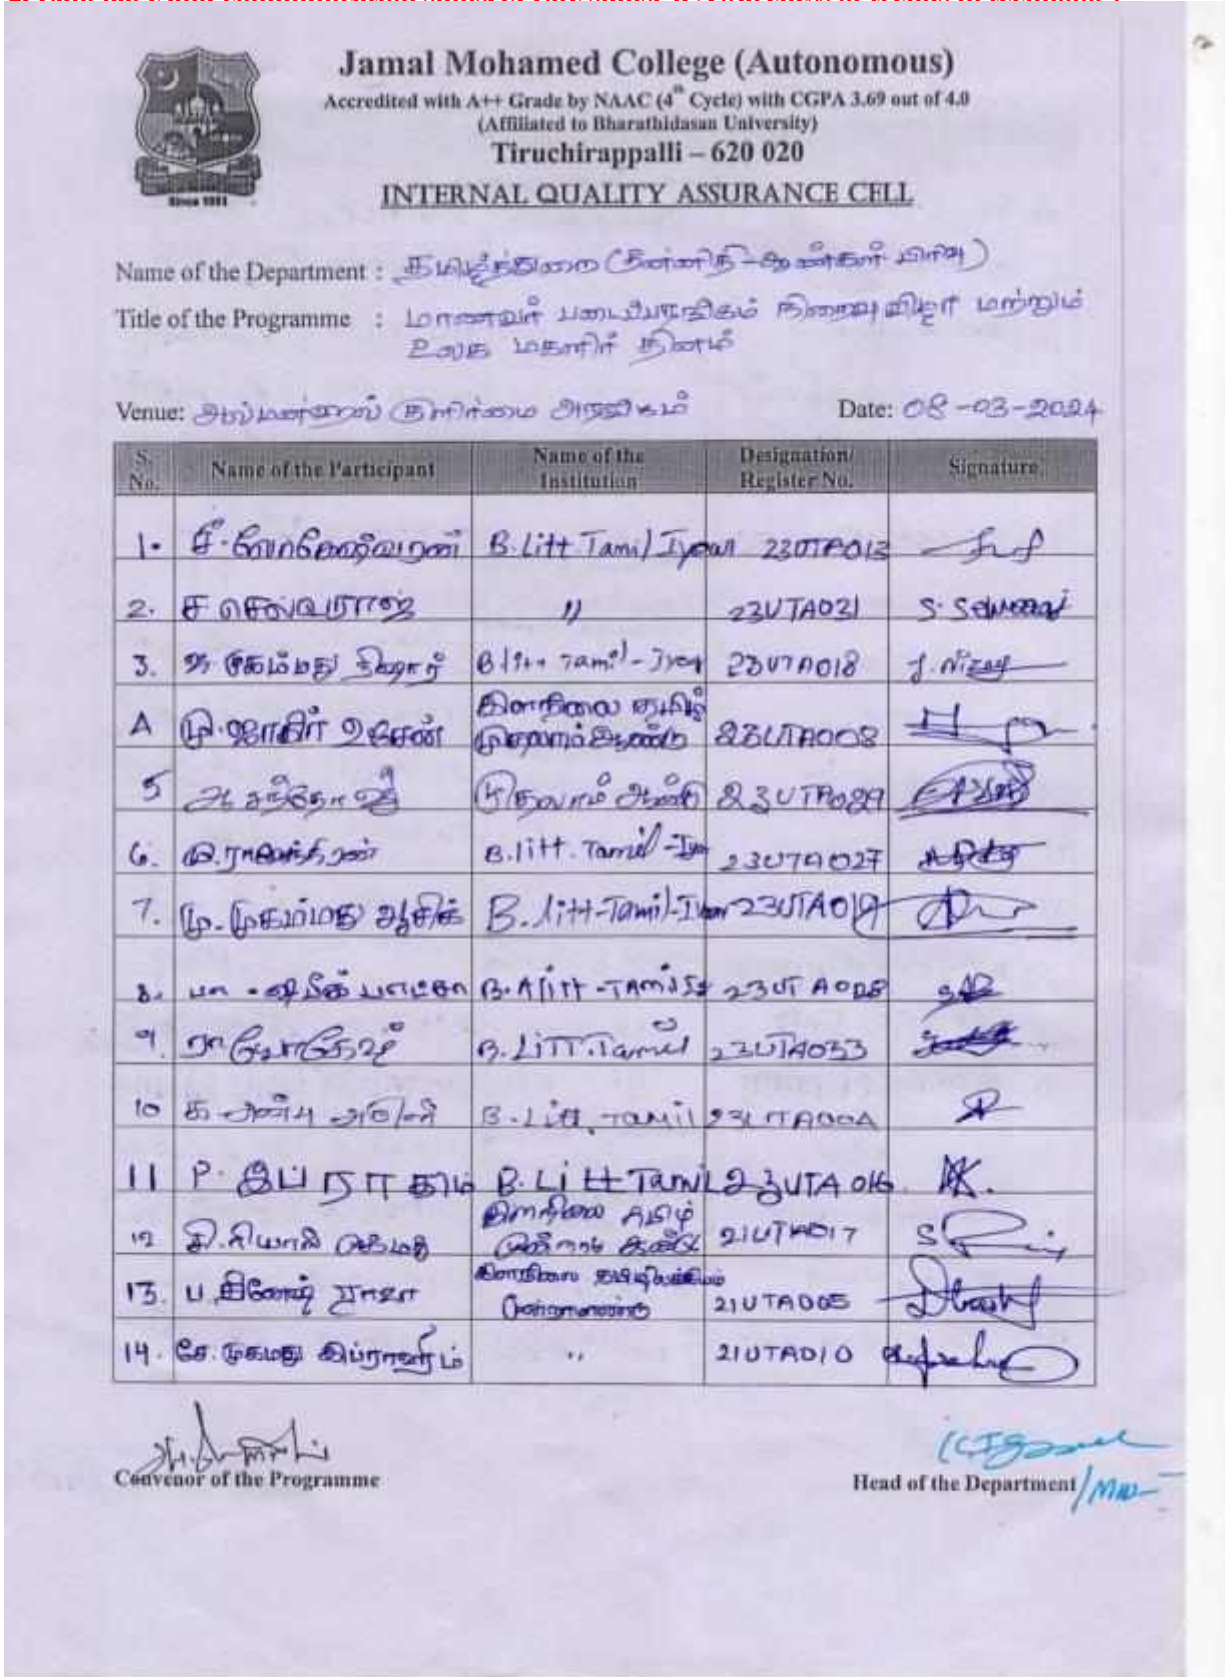 Jamal Mohamed College (Autonomous)
Accredited with A++ Grade by NAAC (4th Cycle) with CGPA 3.69 out of 4.0
(Affiliated to Bharathidasan University)
Tiruchirappalli – 620 020
INTERNAL QUALITY ASSURANCE CELL
Since 1951
Name of the Department : தமிழ்த்துறை (சுயநிதி - ஆண்கள் பிரிவு)
Title of the Programme : மாணவர் படைப்பரங்கம் நிறைவு விழா மற்றும்
உலக மகளிர் தினம்
Venue: குளிர்மை அரங்கம் Date: 08-03-2024
S. No. Name of the Participant Name of the Institution Designation/ Register No. Signature
1. B.Litt Tamil I year 23UTA013
2. ச செல்வராஜ் " 23UTA031 S. Selvaraj
3. முகம்மது நிஷார் B litt Tamil - I year 23UTA018
4 மு.ஜாகிர் உசேன் இளநிலை தமிழ் முதலாம் ஆண்டு 23UTA008
5 ஆ சந்தோஷ் முதலாம் ஆண்டு 23UTA029
6. B.litt. Tamil - I year 23UTA027
7. மு. முகம்மது ஆசிக் B.litt-Tamil-I year 23UTA019
8. பா. ஷபீக் பாட்சா 23UTA028
9. ரா யோகேஷ் B.LiTT.Tamil 23UTA033
10 க அன்பு B.Litt. Tamil 23UTA004
11 P. இப்ராகிம் B.Litt Tamil 23UTA016
12 சி.ரியாஸ் அகமது இளநிலை தமிழ் மூன்றாம் ஆண்டு 21UTA017
13. ப.தினேஷ் இளநிலை தமிழிலக்கியம் மூன்றாமாண்டு 21UTA005
14. சே.முகமது இப்ராஹீம் " 21UTA010
Convenor of the Programme
Head of the Department